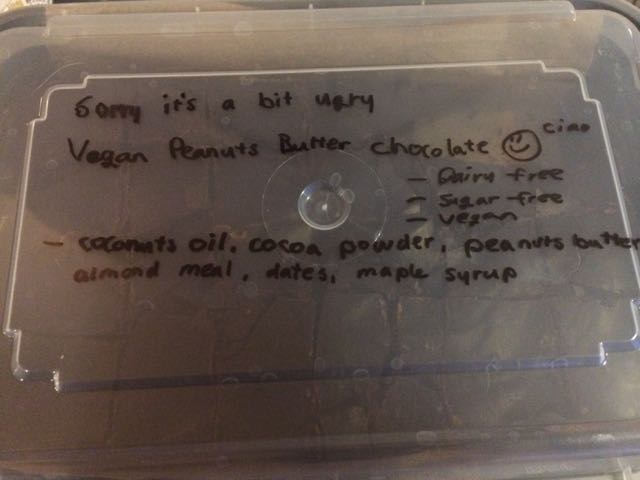 Sorry it's a bit ugry
Vegan Peanuts Butter chocolate ciao
- Dairy free
- Sugar free
- vegan
- coconuts oil, cocoa powder, peanuts butter
almond meal, dates, maple syrup